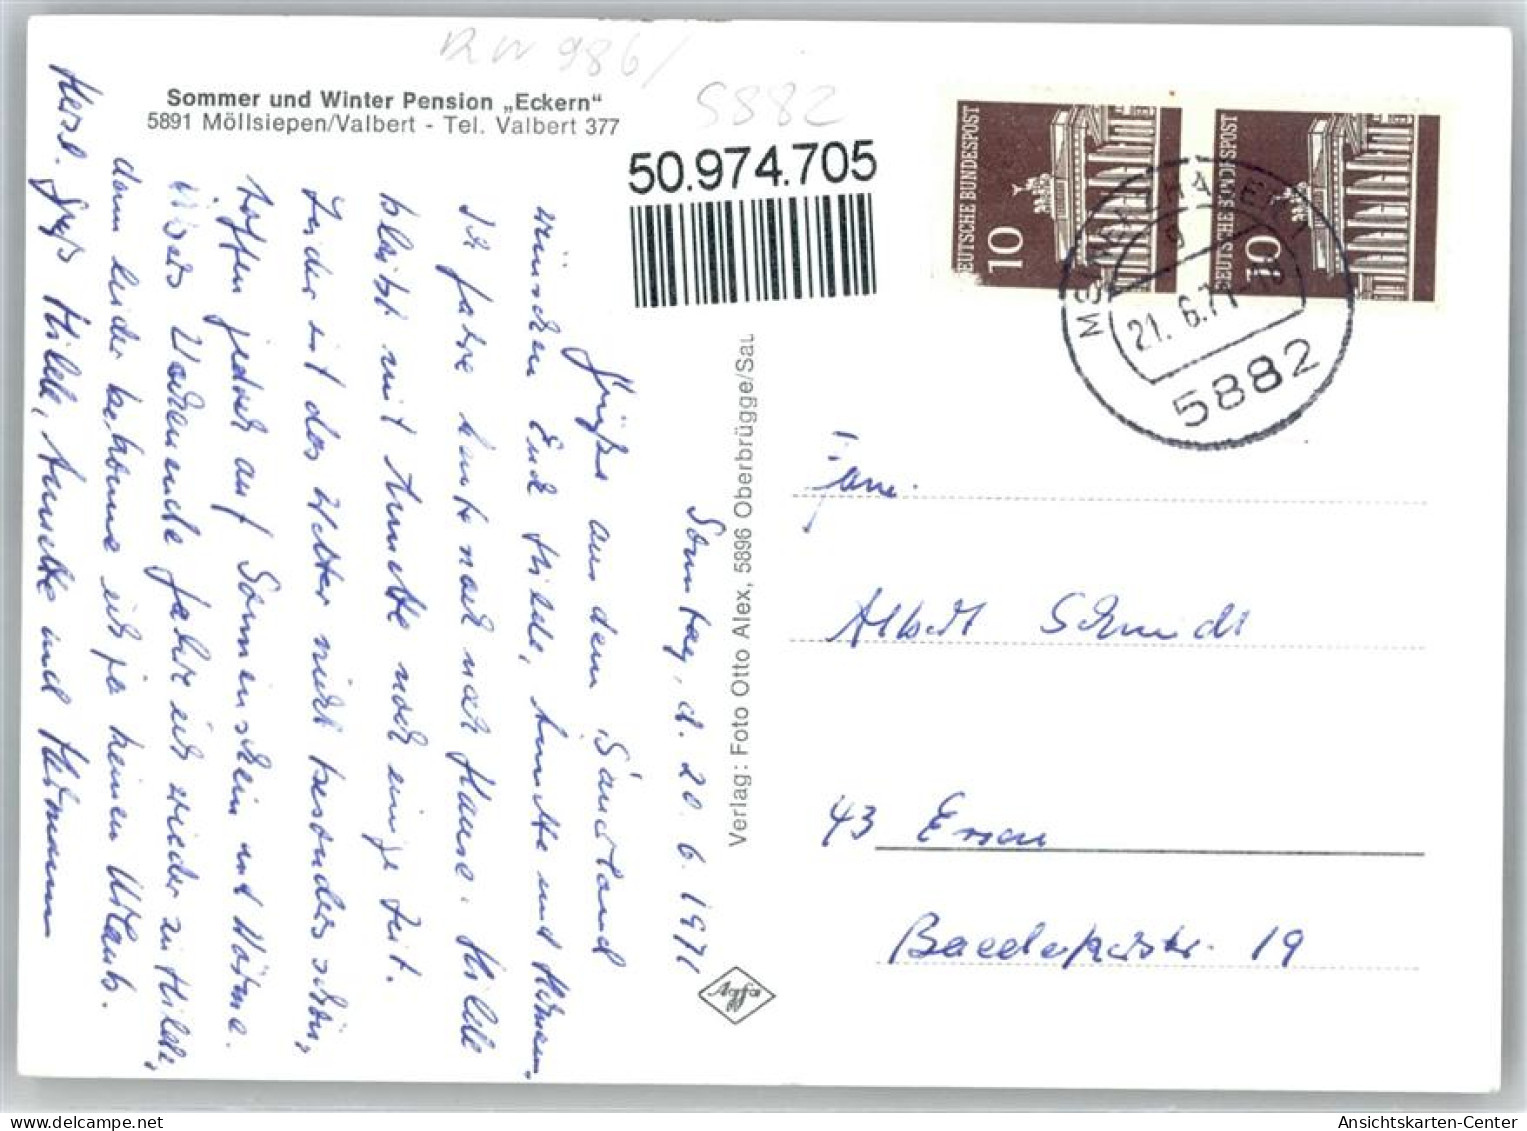 RW 986/
5882
Sommer und Winter Pension „Eckern“
5891 Möllsiepen/Valbert - Tel. Valbert 377
50.974.705
DEUTSCHE BUNDESPOST
10
DEUTSCHE BUNDESPOST
10
21. 6.71
5882
Sonntag, d. 20. 6. 1971
Grüße aus dem Sauerland
wünschen Euch Hilde, Annette und Hermann.
Ich fahre heute noch nach Hause. Hilde
bleibt mit Annette noch einige Zeit.
Leider ist das Wetter nicht besonders schön,
hoffen jedoch auf Sonnenschein und Wärme.
Wochenende fahre ich wieder zu Hilde,
denn leider bekomme ich ja keinen Urlaub.
Herzl. Grüße Hilde, Annette und Hermann
Verlag: Foto Otto Alex, 5896 Oberbrügge/Sau
Agfa
Fam.
Albert Schmidt
43 Essen
Baedekerstr. 19
Ansichtskarten-Center